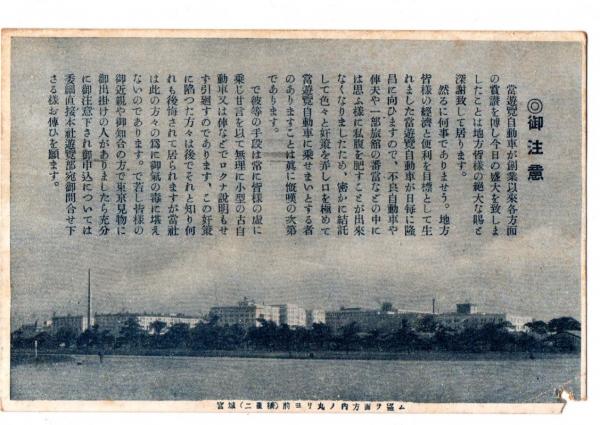 ◎御注意
當遊覽自動車が創業以來各方面
の賞讃を博し今日の盛大を致しま
したことは地方皆樣の絶大な賜と
深謝致して居ります。
然るに何事でありませう。地方
皆樣の經濟と便利を目標として生
れました當遊覽自動車が日每に隆
昌に向ひますので、不良自動車や
俥夫や一部旅館の番當などの中に
は思ふ樣に私腹を肥すことが出來
なくなりましたため、密かに結託
して色々と奸策を弄し口を極めて
當遊覽自動車に乘せまいとする者
のありますことは眞に慨嘆の次第
であります。
で彼等の手段は常に皆樣の虛に
乘じ甘言を以て無理に小型の古自
動車又は俥などでロクナ說明もせ
ず引廻すのであります、この奸策
に陷つた方々は後でそれと知り何
れも後悔されて居られますが當社
は此の方々の爲に御氣の毒に堪え
ないのであります。で若し皆樣の
御近親や御知合の方で東京見物に
御出掛けの人がありましたら充分
に御注意下され御申込については
委細直接本社遊覽部宛御問合せ下
さる樣お傳ひを願ます。
宮城(二重橋)前ヨリ丸ノ內方面ヲ望ム